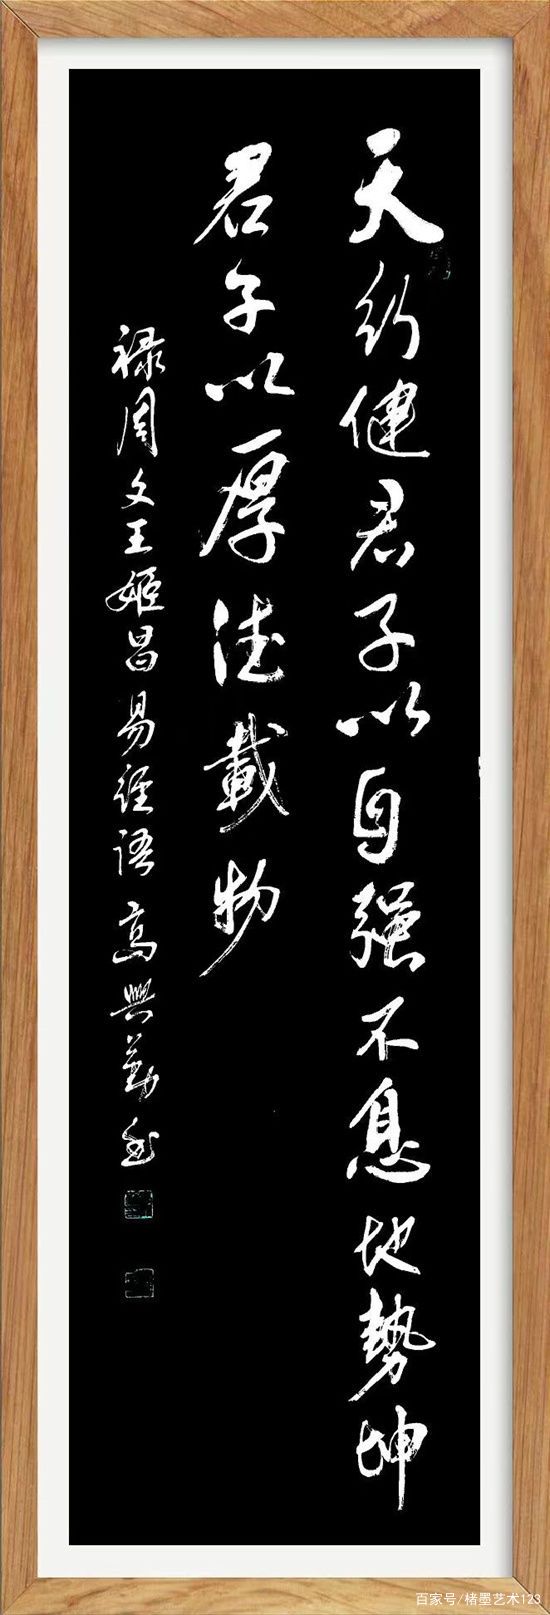 天行健君子以自强不息地势坤
君子以厚德載物
禄周文王姬昌易经语 高兴勤书
百家号/楮墨艺术123